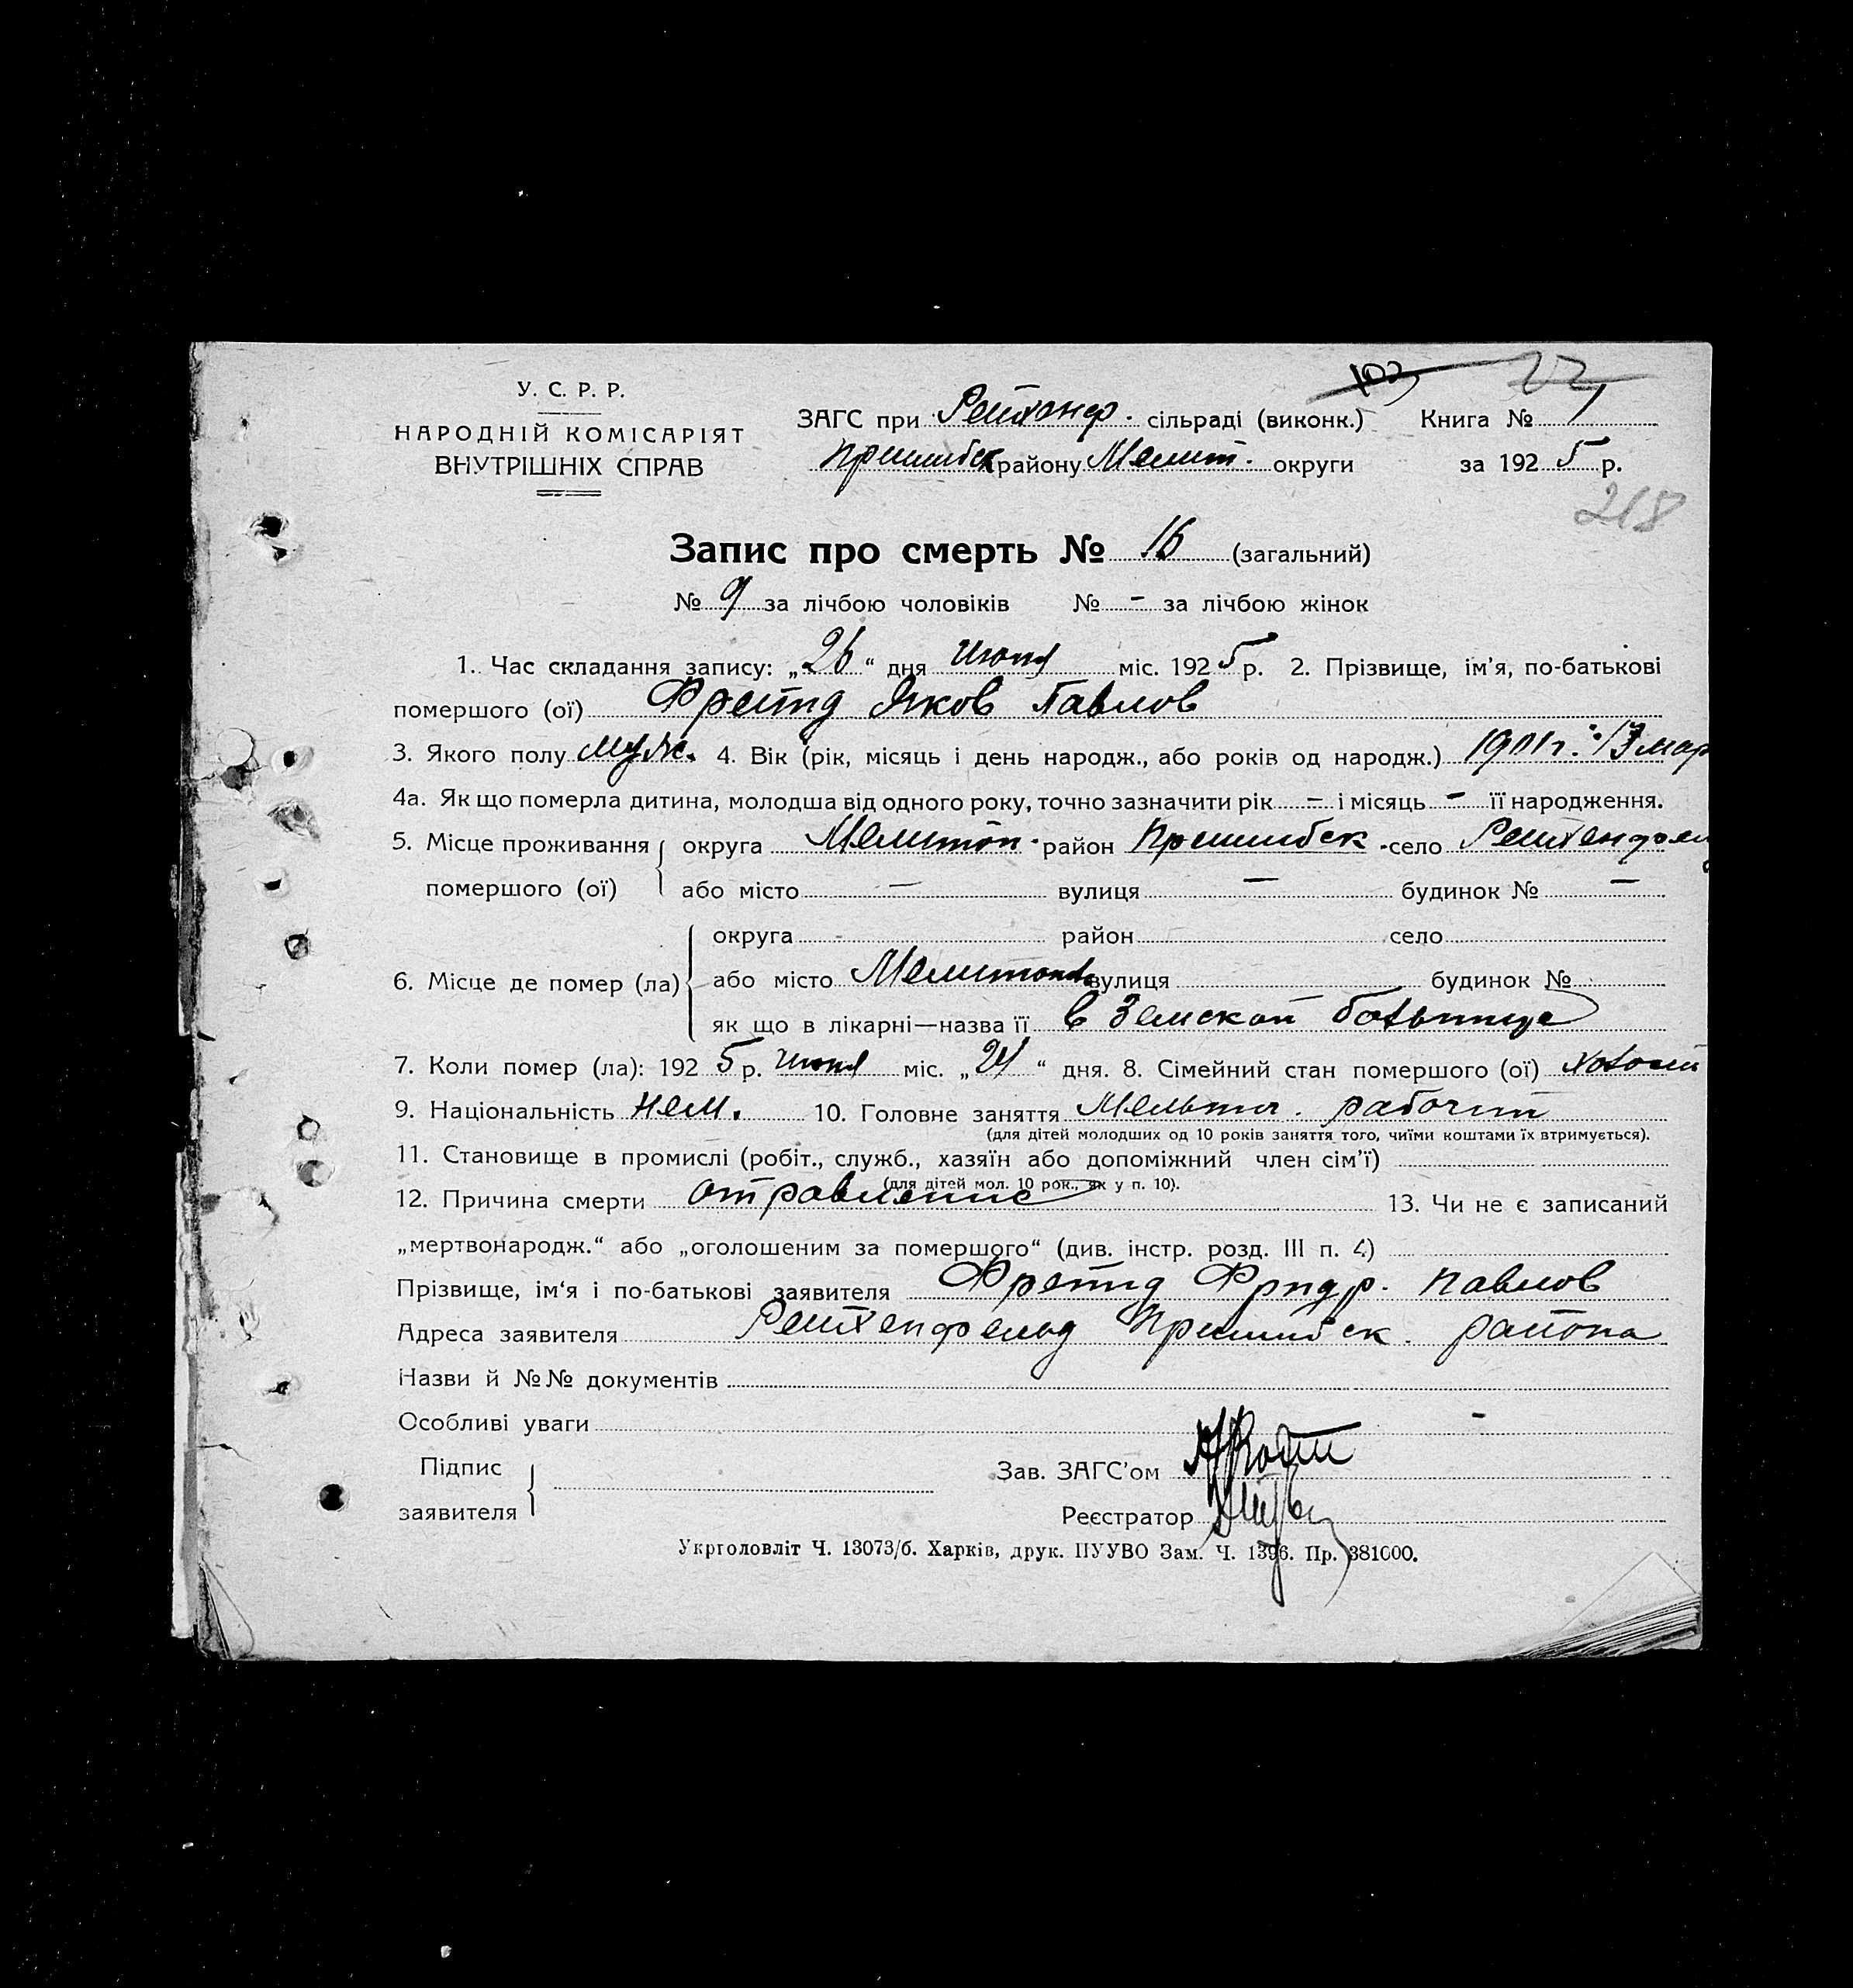 У. С. Р. Р.
НАРОДНІЙ КОМІСАРІЯТ
ВНУТРІШНІХ СПРАВ
103 22
ЗАГС при Рейхенф. сільраді (виконк.) Книга № 1
Пришибск району Мелит. округи за 1925 р.
218
Запис про смерть № 16 (загальний)
№ 9 за лічбою чоловіків № - за лічбою жінок
1. Час складання запису: „26“ дня Июня міс. 1925 р. 2. Прізвище, ім'я, по-батькові
помершого (ої) Фрейнд Яков Павлов
3. Якого полу муж. 4. Вік (рік, місяць і день народж., або років од народж.) 1901 г. 13 мар
4а. Як що померла дитина, молодша від одного року, точно зазначити рік - і місяць - її народження.
5. Місце проживання округа Мелитоп. район Пришибск. село Рейхенфель
помершого (ої) або місто — вулиця — будинок № —
округа район село
6. Місце де помер (ла) або місто Мелитополь вулиця будинок №
як що в лікарні—назва її в Земской больнице
7. Коли помер (ла): 1925 р. Июня міс. „24“ дня. 8. Сімейний стан помершого (ої) холост
9. Національність нем. 10. Головне заняття Мельнич. рабочий
(для дітей молодших од 10 років заняття того, чиїми коштами їх втримується).
11. Становище в промислі (робіт., служб., хазяїн або допоміжний член сім'ї)
(для дітей мол. 10 рок., як у п. 10).
12. Причина смерти отравление 13. Чи не є записаний
„мертвонародж.“ або „оголошеним за помершого“ (див. інстр. розд. III п. 4)
Прізвище, ім'я і по-батькові заявителя Фрейнд Фридр. Павлов
Адреса заявителя Рейхенфельд Пришибск. района
Назви й №№ документів
Особливі уваги -
Підпис
заявителя
Зав. ЗАГС'ом
Реєстратор
Укрголовліт Ч. 13073/б. Харків, друк. ПУУВО Зам. Ч. 1396. Пр. 381000.